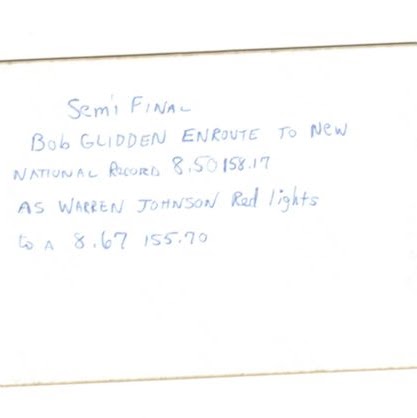 Semi FINAL
Bob GLIDDEN ENROUTE TO New
NATIONAL RECORD 8.50 158.17
AS WARREN JOHNSON Red lights
to A 8.67 155.70